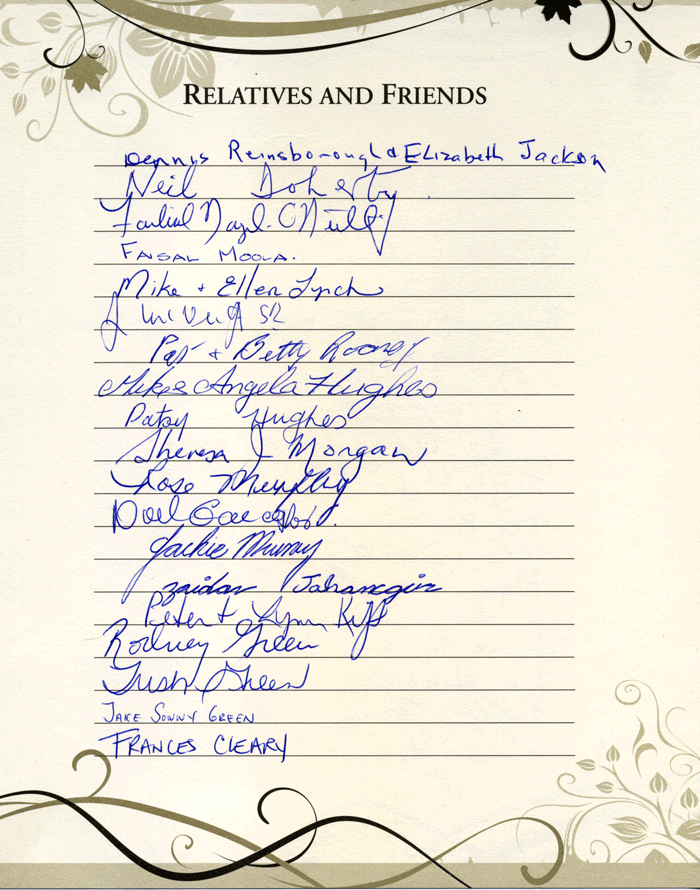 RELATIVES AND FRIENDS
Dennys Reinsborough & Elizabeth Jackson
Neil Doherty
FAISAL MOOLA.
Mike + Ellen Lynch
Pat + Betty Rooney
Mike & Angela Hughes
Patsy Hughes
Theresa J Morgan
Rose Murphy
Jackie Murray
Zaidan Jahangir
Peter + Lynn Kift
Rodney Green
Trish Green
JAKE SONNY GREEN
FRANCES CLEARY